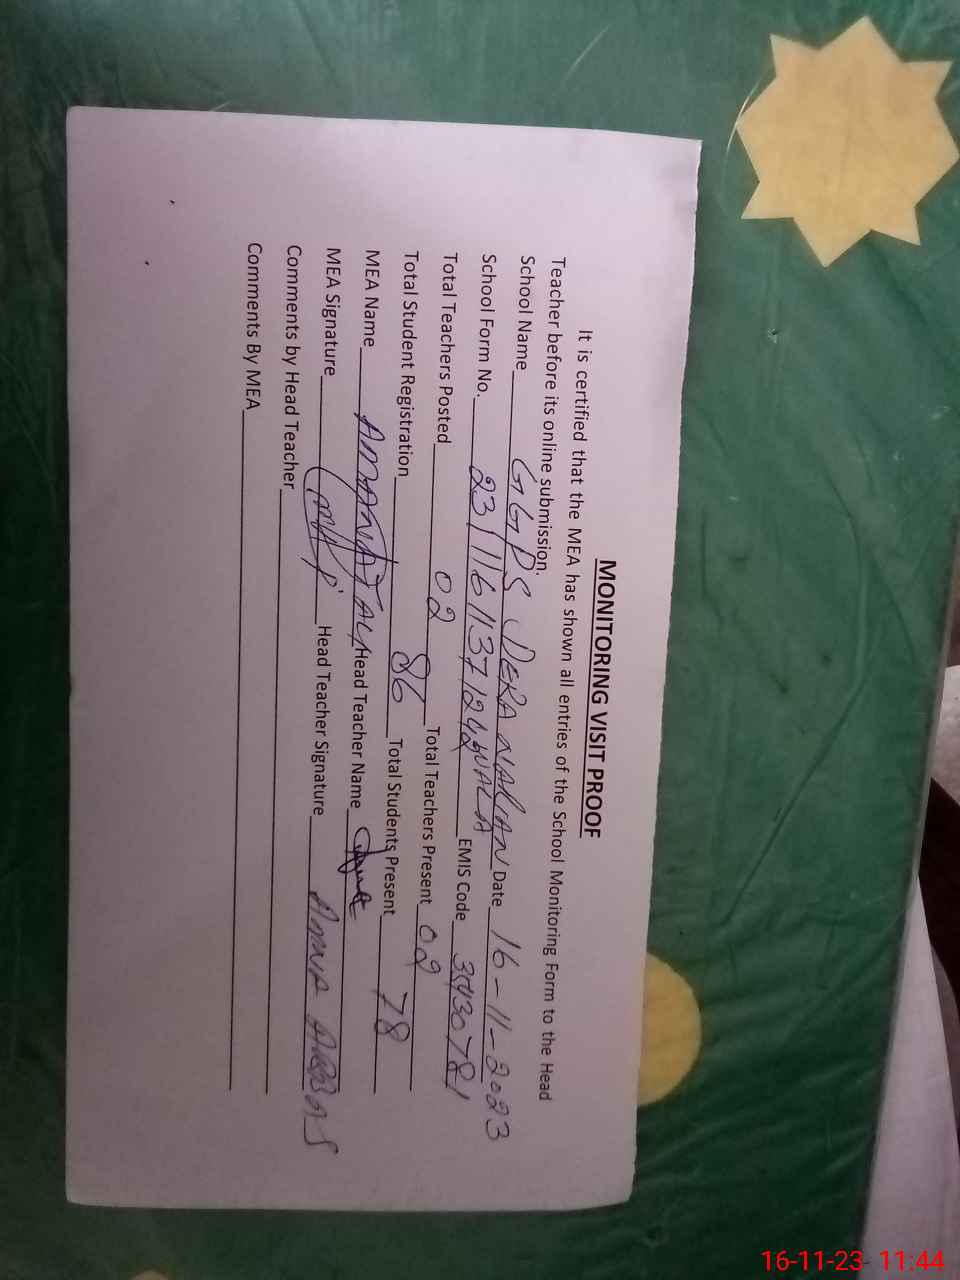 MONITORING VISIT PROOF
It is certified that the MEA has shown all entries of the School Monitoring Form to the Head
Teacher before its online submission.
School Name GGPS DERA NARIAN WALA Date 16-11-2023
School Form No. 23/1161137/242 EMIS Code 35430781
Total Teachers Posted 02 Total Teachers Present 02
Total Student Registration 86 Total Students Present 78
MEA Name AMANAT ALI Head Teacher Name
MEA Signature Head Teacher Signature AMNA ABBAS
Comments by Head Teacher
Comments By MEA
16-11-23 11:44